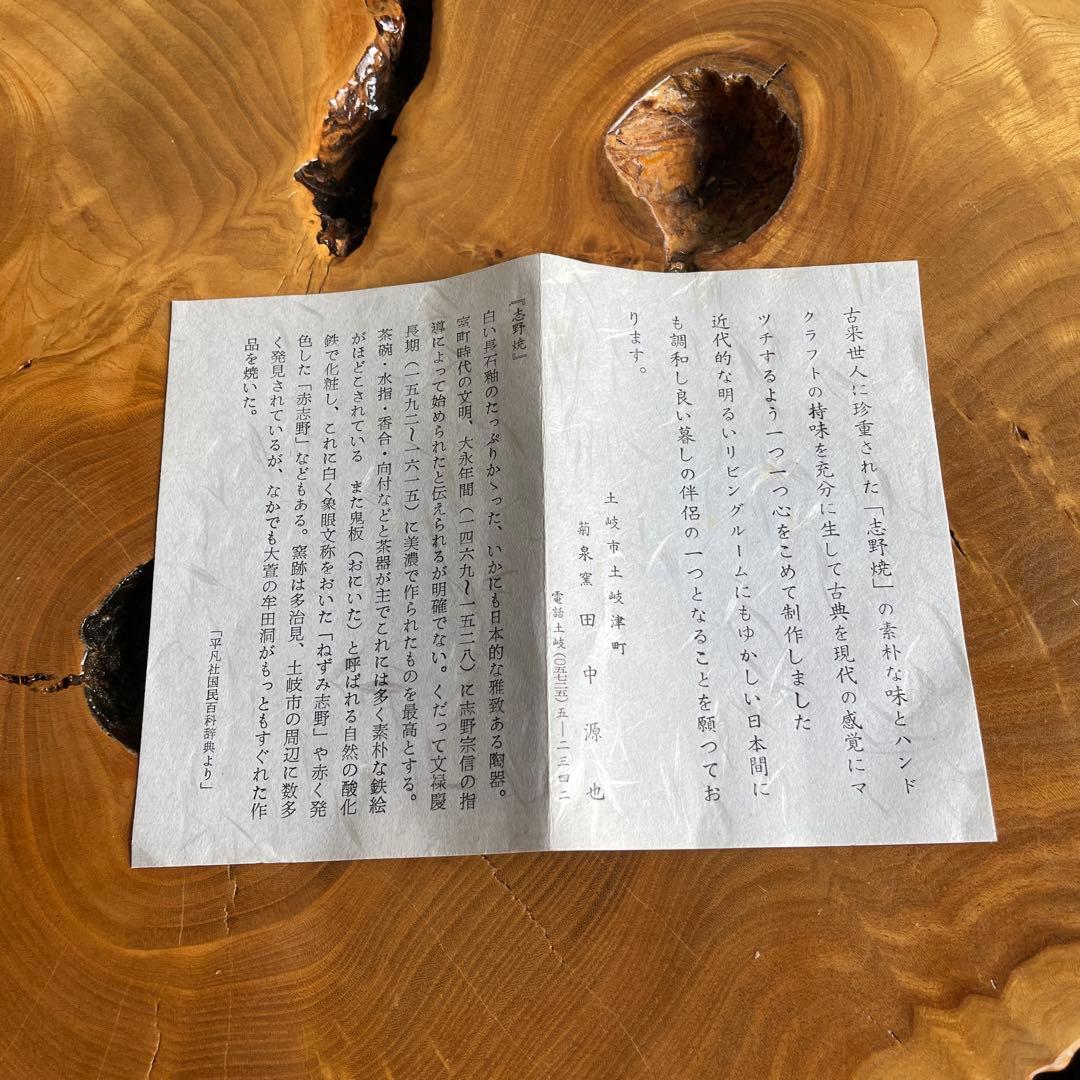 古来世人に珍重された「志野焼」の素朴な味とハンド
クラフトの持味を充分に生して古典を現代の感覚にマ
ツチするよう一つ一つ心をこめて制作しました
近代的な明るいリビングルームにもゆかしい日本間に
も調和し良い暮しの伴侶の一つとなることを願つてお
ります。
土岐市土岐津町
菊泉窯 田中源也
電話土岐(〇五七二五)五―二三四二
『志野焼』
白い長石釉のたっぷりかゝった、いかにも日本的な雅致ある陶器。
室町時代の文明、大永年間(一四六九〜一五二八)に志野宗信の指
導によって始められたと伝えられるが明確でない。くだって文禄慶
長期(一五九二〜一六一五)に美濃で作られたものを最高とする。
茶碗・水指・香合・向付などと茶器が主でこれには多く素朴な鉄絵
がほどこされている また鬼板(おにいた)と呼ばれる自然の酸化
鉄で化粧し、これに白く象眼文称をおいた「ねずみ志野」や赤く発
色した「赤志野」などもある。窯跡は多治見、土岐市の周辺に数多
く発見されているが、なかでも大萱の牟田洞がもっともすぐれた作
品を焼いた。
「平凡社国民百科辞典より」